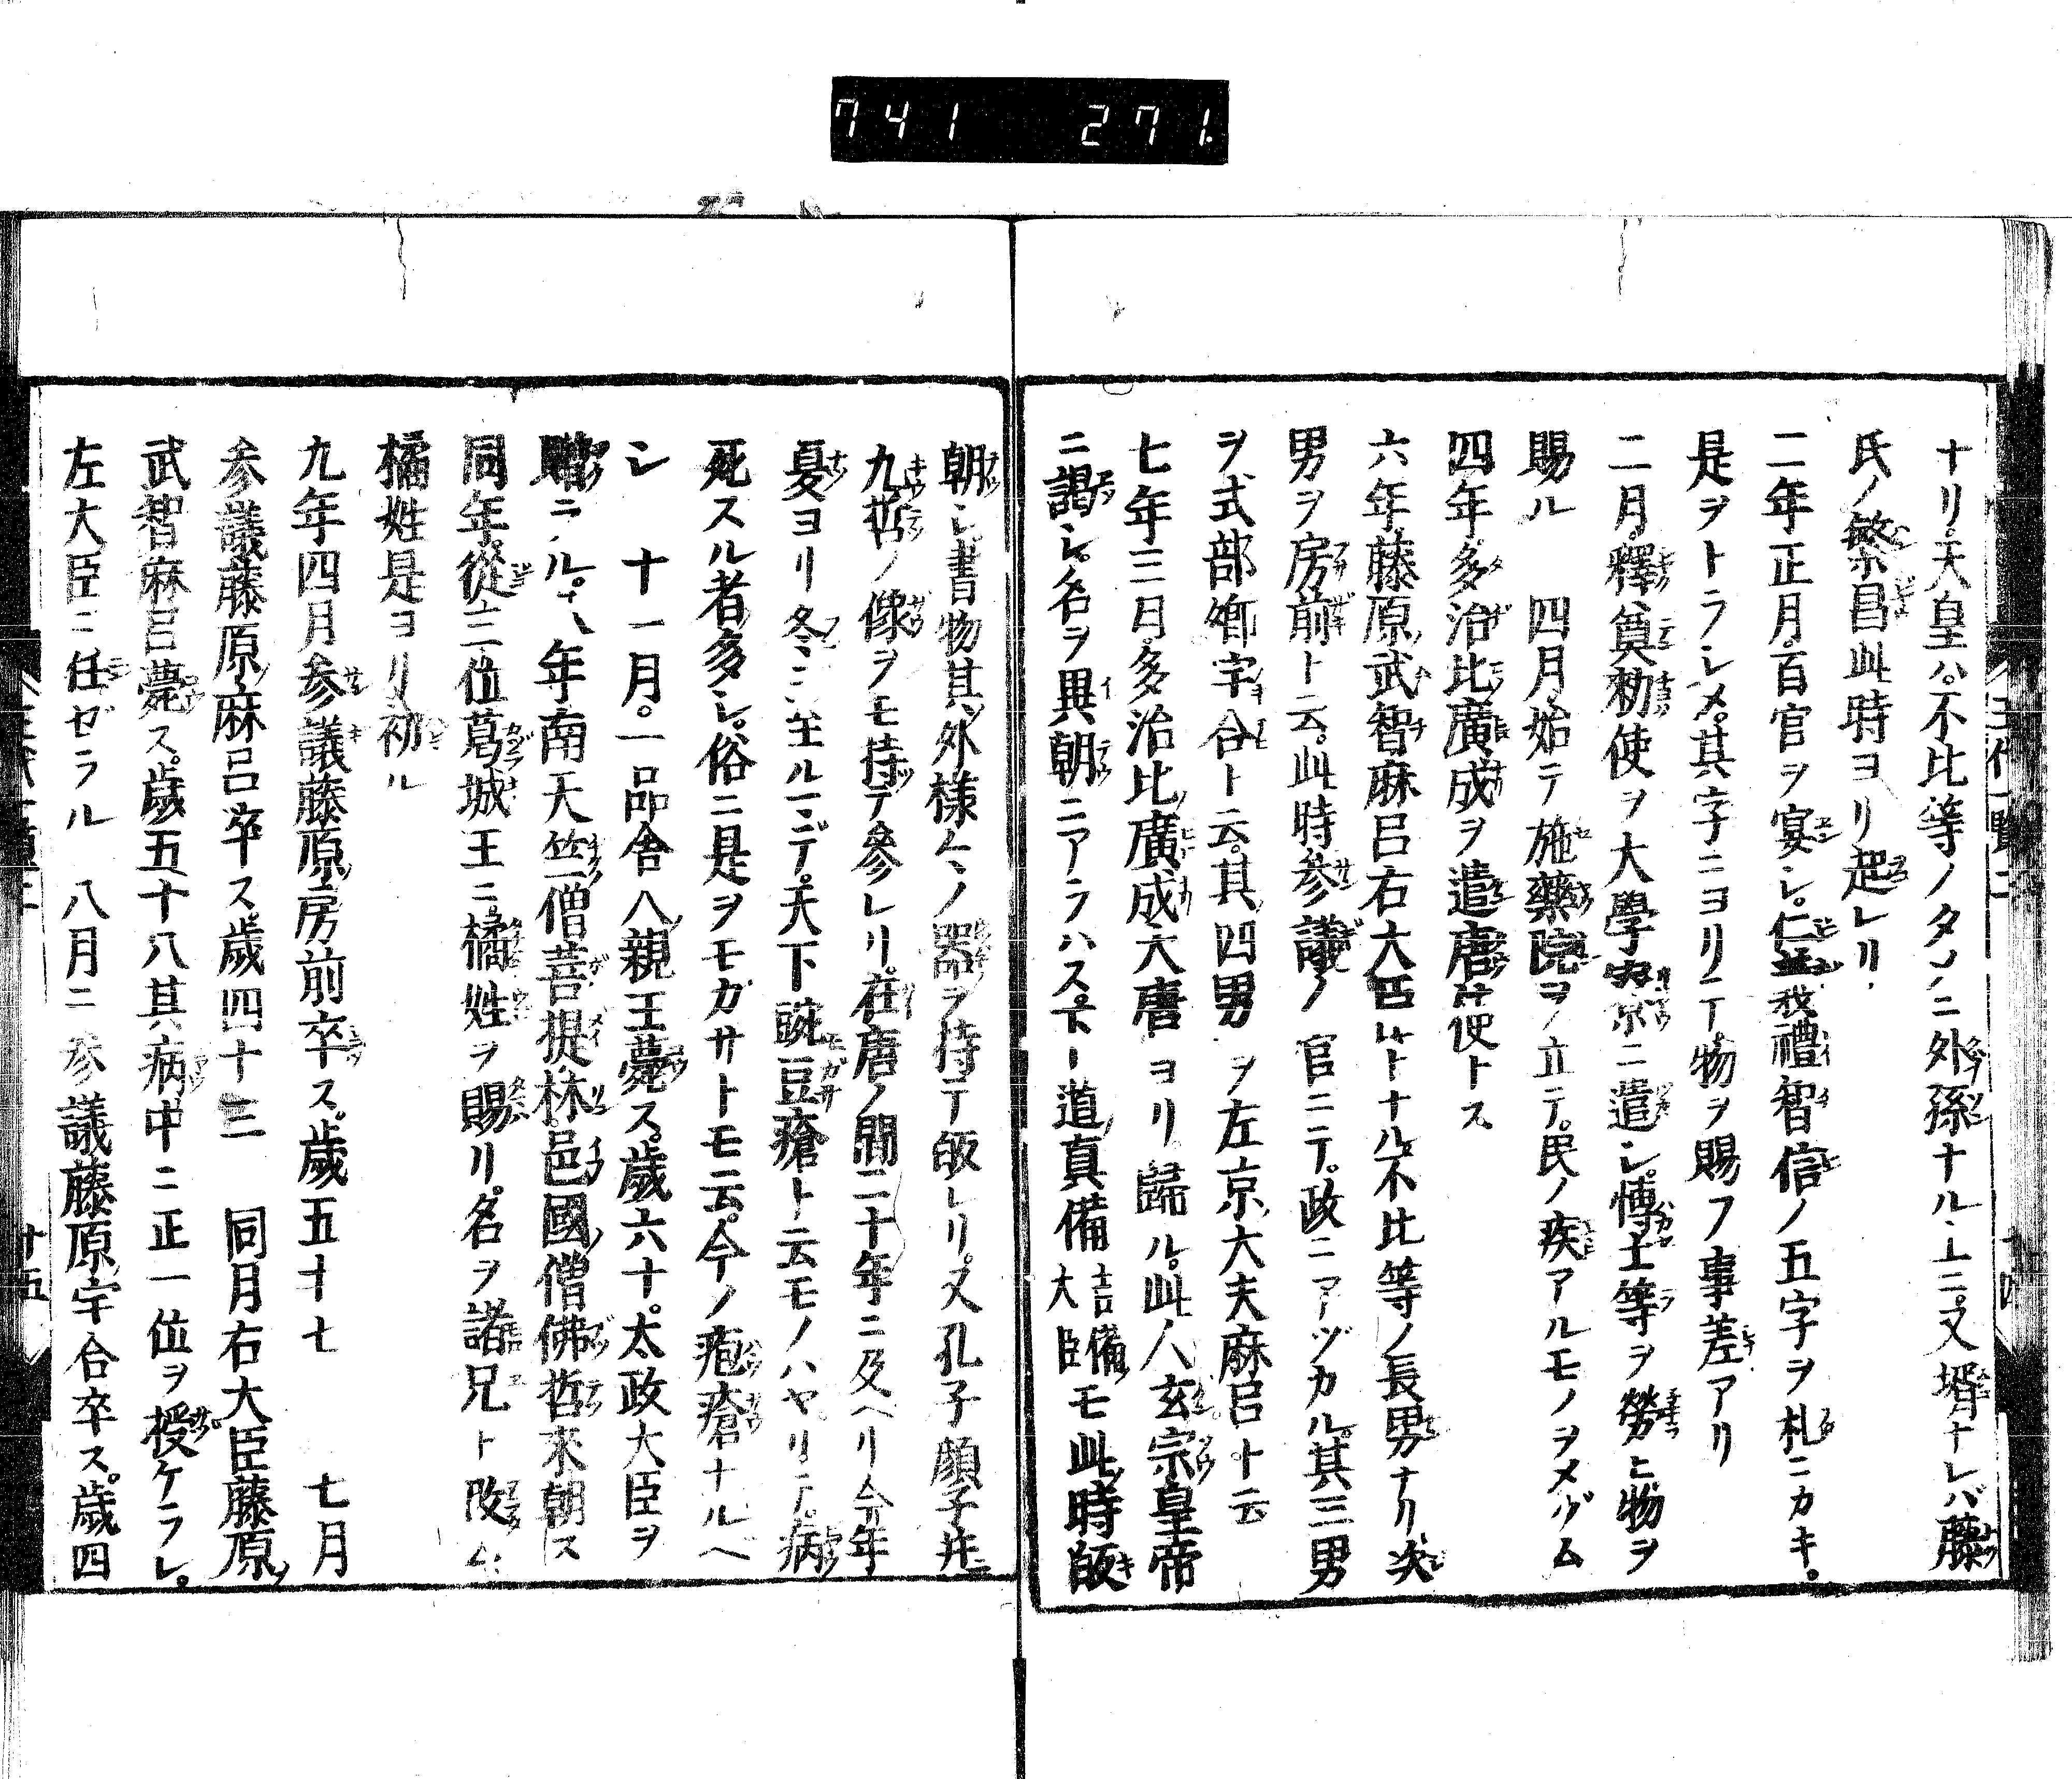 741 271
ナリ。天皇ハ。不比等ノタメニ外孫ナル上ニ。又壻ナレバ藤
氏ノ繁昌此時ヨリ起レリ
二年正月。百官ヲ宴シ。仁義禮智信ノ五字ヲ札ニカキ。
是ヲトラシメ。其字ニヨリテ。物ヲ賜フ事差アリ
二月。釋奠勅使ヲ大學寮ニ遣シ。博士等ヲ勞ヒ物ヲ
賜ル 四月。始テ施藥院ヲ立テ。民ノ疾アルモノヲメグム
四年。多治比廣成ヲ遣唐使トス
六年。藤原武智麻呂右大臣トナル。不比等ノ長男ナリ。次
男ヲ房前ト云。此時參議ノ官ニテ。政ニアヅカル。其三男
ヲ式部卿宇合ト云。其四男ヲ左京大夫麻呂ト云
七年三月。多治比廣成大唐ヨリ歸ル。此人玄宗皇帝
ニ謁シ。名ヲ異朝ニアラハス。下道真備吉備大臣モ此時皈
朝シ書物其外樣々ノ器ヲ持テ皈レリ。又孔子顔子并
九哲ノ像ヲモ持テ參レリ。在唐ノ間二十年ニ及ヘリ今年
夏ヨリ冬ニ至ルマデ。天下豌豆瘡ト云モノハヤリテ。病
死スル者多シ。俗ニ是ヲモガサトモ云。今ノ疱瘡ナルベ
シ 十一月。一品舍人親王薨ス。歳六十。太政大臣ヲ
贈ラル。八年南天竺僧菩提。林邑國僧佛哲來朝ス
同年。從三位葛城王ニ。橘姓ヲ賜リ。名ヲ諸兄ト改ム
橘姓是ヨリ初ル
九年四月参議藤原房前卒ス。歳五十七 七月
参議藤原麻呂卒ス歳四十三 同月右大臣藤原
武智麻呂薨ス。歳五十八其病中ニ正一位ヲ授ケラレ。
左大臣ニ任ゼラル 八月ニ参議藤原宇合卒ス。歳四
十五